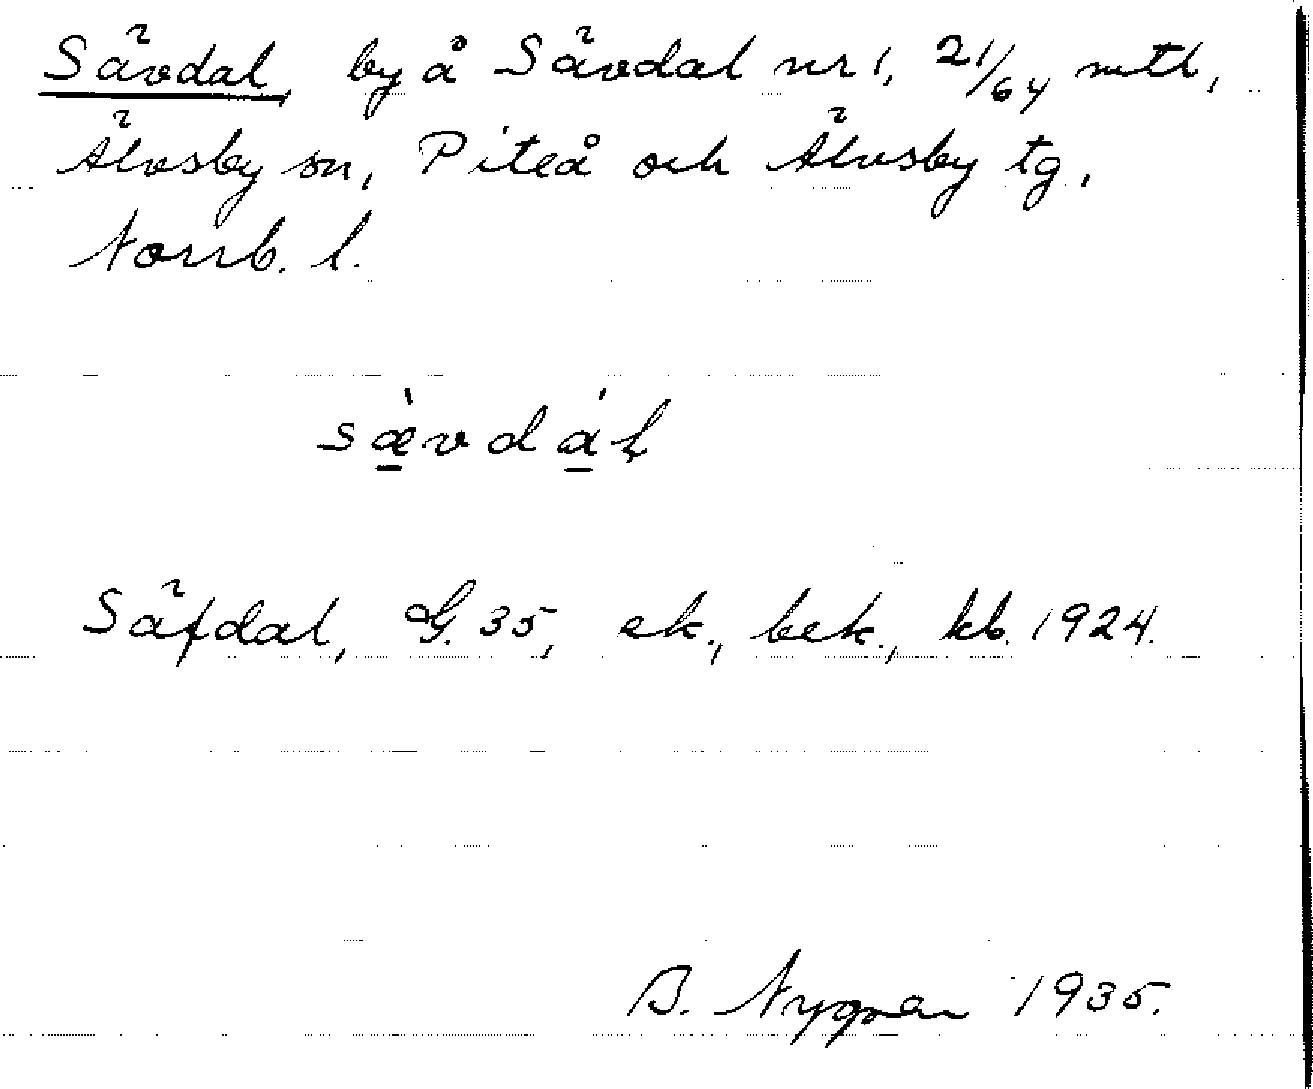 Sävdal, by å Sävdal nr 1, 21/64 mtl,
Älvsby sn, Piteå och Älvsby tg,
Norrb. l.
sæ̀vdáḷ
Säfdal, G. 35, ek., bek., kb. 1924.
B. Nygren 1935.